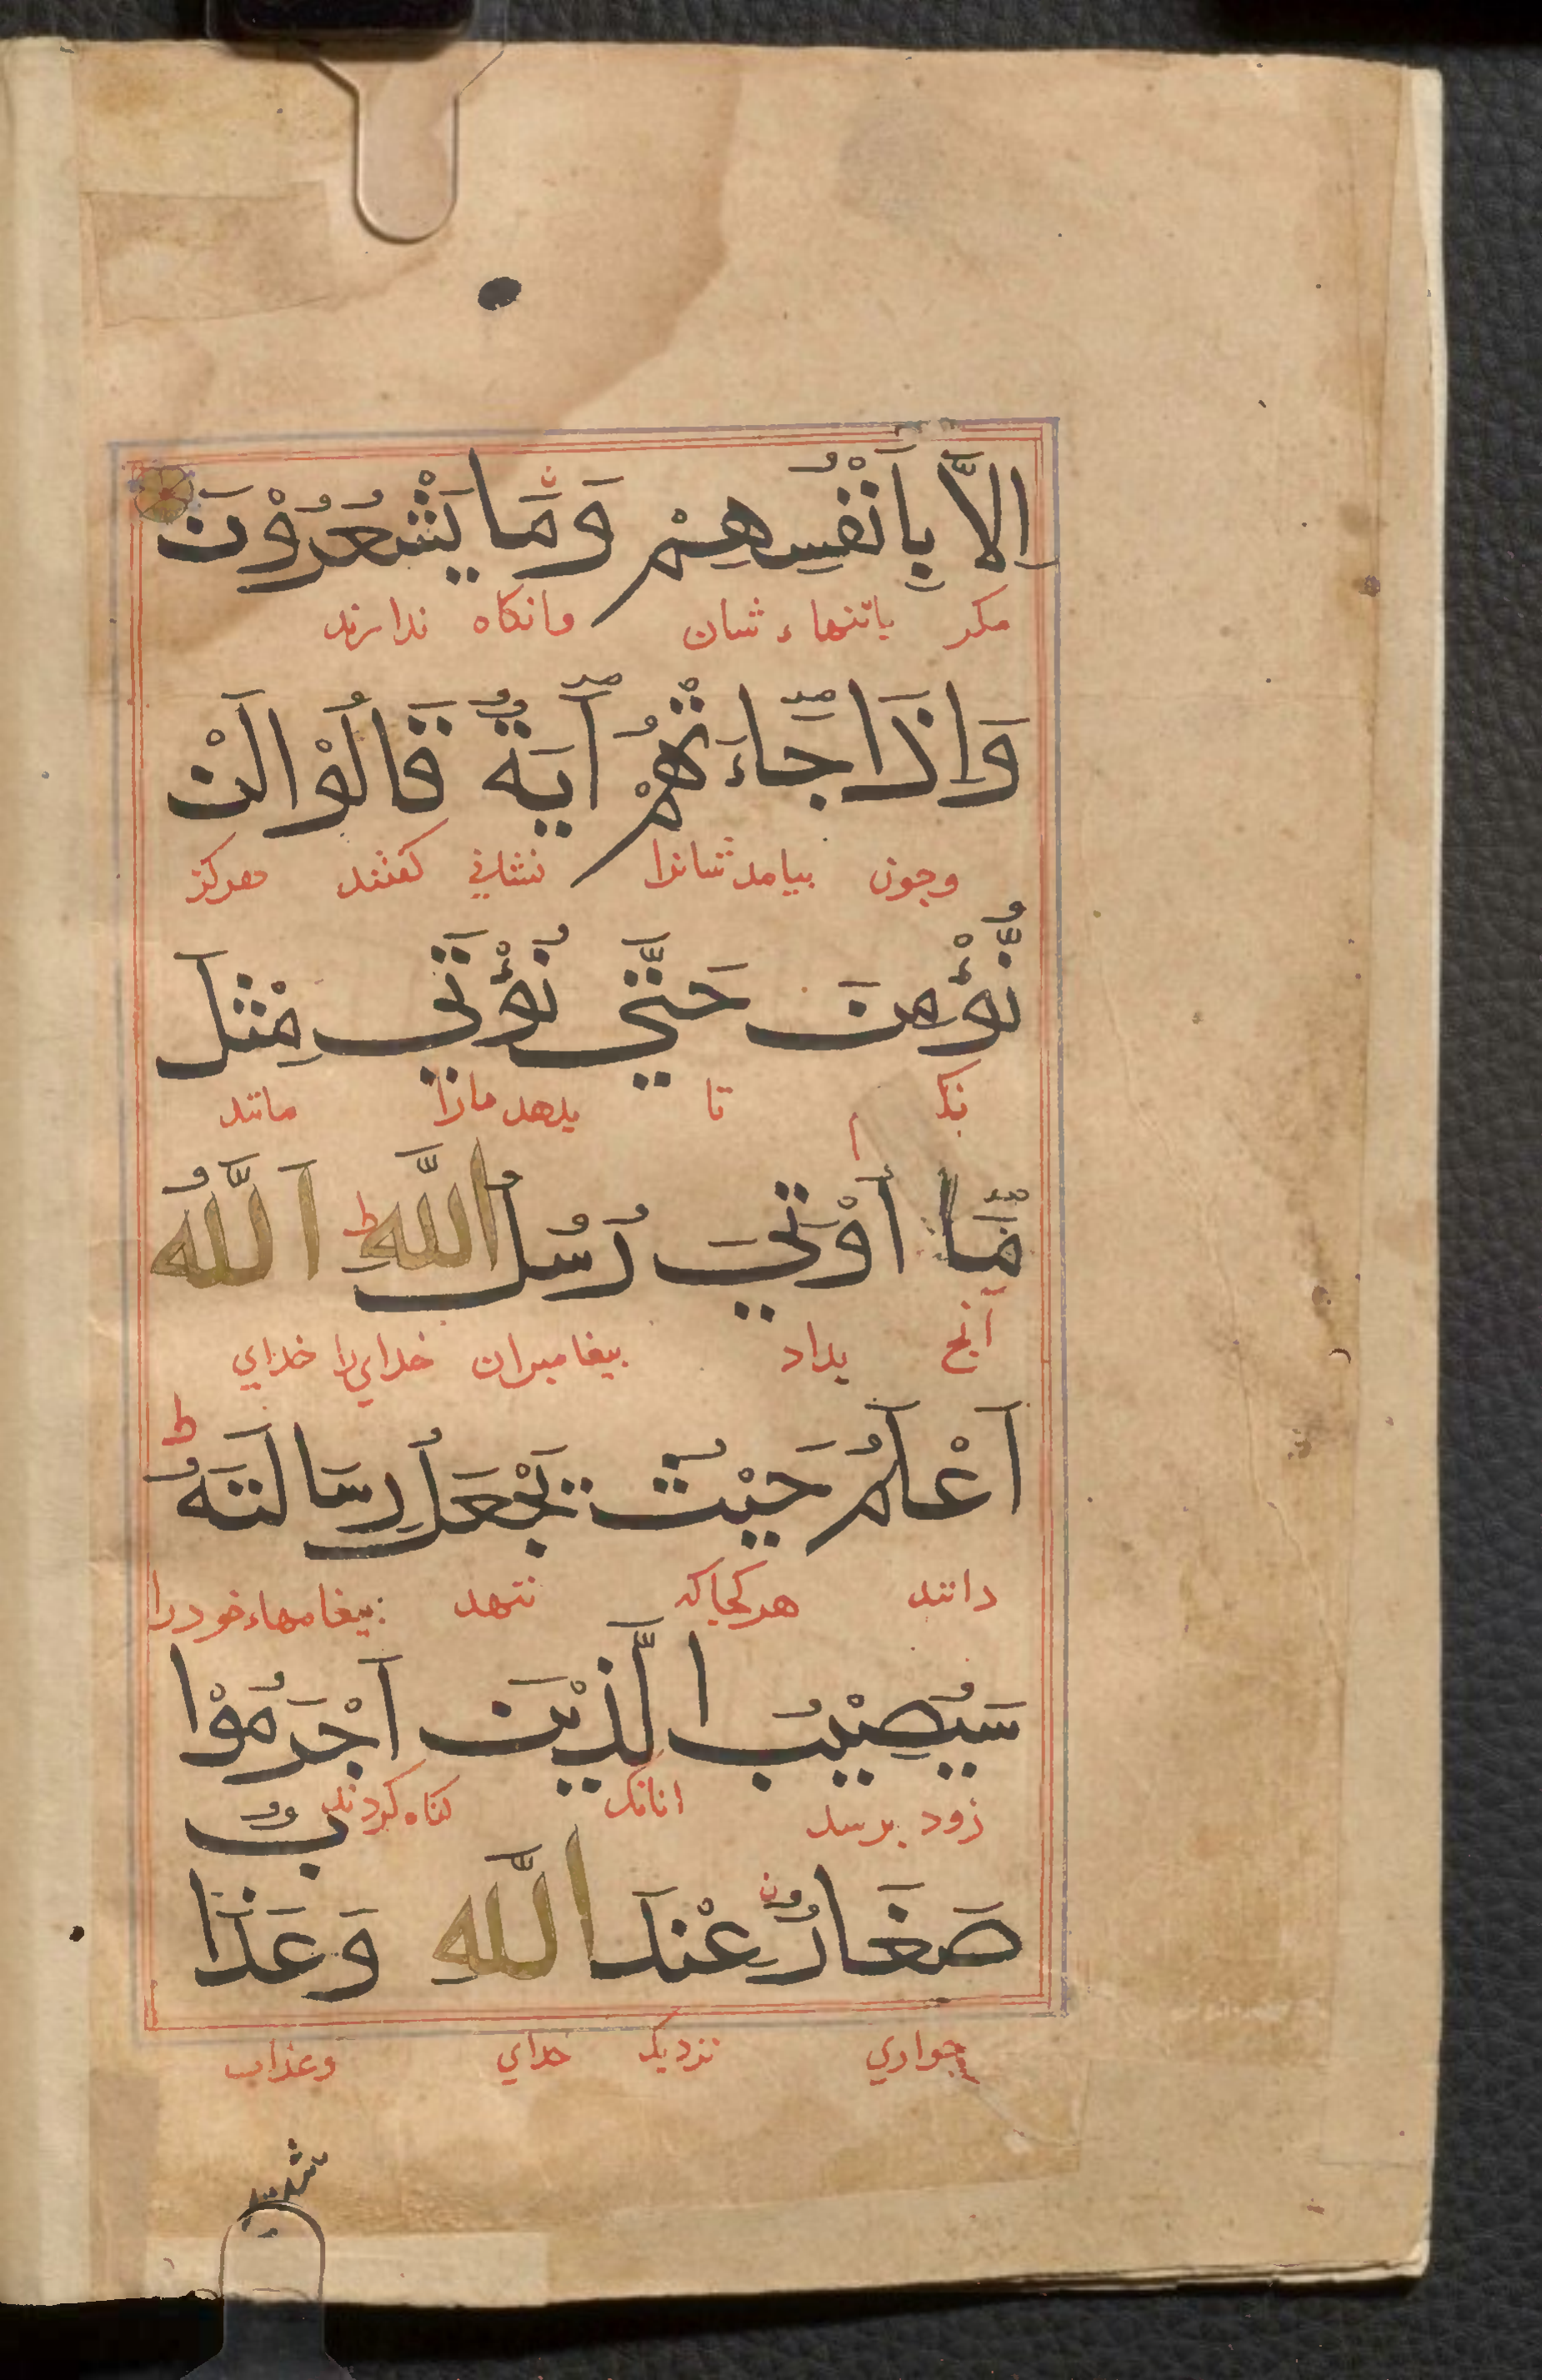 اِلَّا بِاَنْفُسِهِمْ وَمَا يَشْعُرُوْنَ
مكر باتنهاء شان وانكاه ندارند
وَاِذَا جَآءَتْهُمْ آيَةٌ قَالُوْا لَنْ
وجون بيامد شانرا نشاني كفتند هركز
نُّؤْمِنَ حَتّٰي نُؤْتٰي مِثْلَ
تا بدهد مارا مانند
مَآ اُوْتِيَ رُسُلُ اللّٰهِ ط اَللّٰهُ
آنج بداد بيغامبران خدايرا خداي
اَعْلَمُ حَيْثُ يَجْعَلُ رِسَالَتَهُ ط
دانند هركجاكه ننهد بيغامهاء خودرا
سَيُصِيْبُ الَّذِيْنَ اَجْرَمُوْا
زود برسد انانك كناه كردند
صَغَارٌ عِنْدَ اللّٰهِ وَعَذَابٌ
خواري نزديك خداي وعذاب